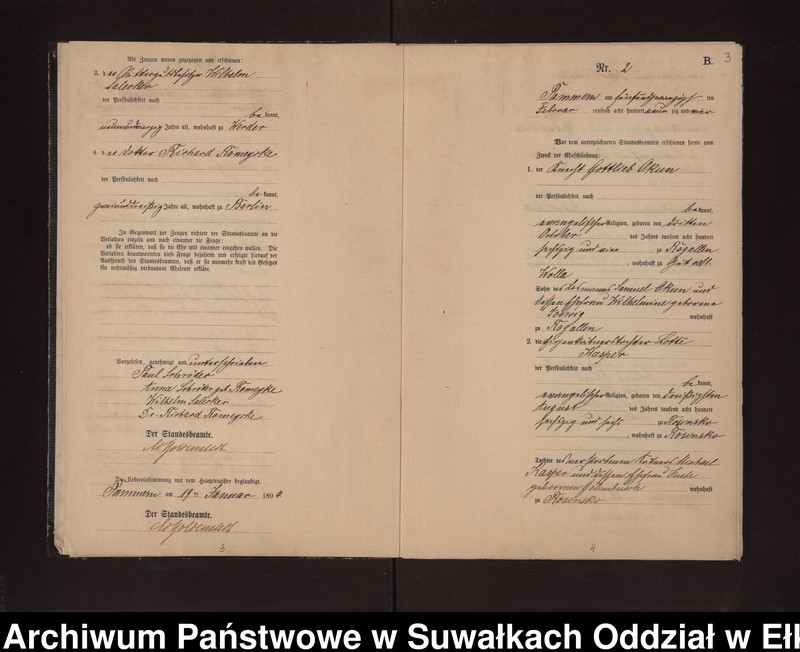 Als Zeugen waren zugezogen und erschienen:
3. der Wilhelm
Salecker
der Persönlichkeit nach
be kannt,
Jahre alt, wohnhaft zu Werder
4. der Doktor Richard Romeycke
der Persönlichkeit nach
be kannt,
zweiunddreißig Jahre alt, wohnhaft zu Berlin
In Gegenwart der Zeugen richtete der Standesbeamte an die
Verlobten einzeln und nach einander die Frage:
ob sie erklären, daß sie die Ehe mit einander eingehen wollen. Die
Verlobten beantworteten diese Frage bejahend und erfolgte hierauf der
Ausspruch des Standesbeamten, daß er sie nunmehr kraft des Gesetzes
für rechtmäßig verbundene Eheleute erkläre.
Vorgelesen, genehmigt und unterschrieben
Paul Schröder
Anna Schröder geb. Romeycke
Wilhelm Salecker
Dr. Richard Romeycke
Der Standesbeamte.
Die Uebereinstimmung mit dem Hauptregister beglaubigt.
Pammern am 19ten Januar 1894
Der Standesbeamte.
3
B. 3
Nr. 2
Pammern am fünfundzwanzigsten
Februar tausend acht hundert neunzig und vier
Vor dem unterzeichneten Standesbeamten erschienen heute zum
Zweck der Eheschließung:
1. der Knecht Gottlieb Okun
der Persönlichkeit nach
be kannt,
evangelischer Religion, geboren den dritten
October des Jahres tausend acht hundert
sechszig und vier zu Rogallen
, wohnhaft zu Gut
Wolla
Sohn des Samuel Okun und
dessen Ehefrau Wilhelmine geborene
wohnhaft
zu Rogallen
2. die Eigenkätnerstochter Lotte
Kasper
der Persönlichkeit nach
be kannt,
evangelischer Religion, geboren den dreißigsten
August des Jahres tausend acht hundert
sechszig und sechs zu Rosinsko
, wohnhaft zu Rosinsko
Tochter des verstorbenen Kätners Michael
Kasper und dessen Ehefrau
geborenen wohnhaft
zu Rosinsko
4
Archiwum Państwowe w Suwałkach Oddział w Ełk